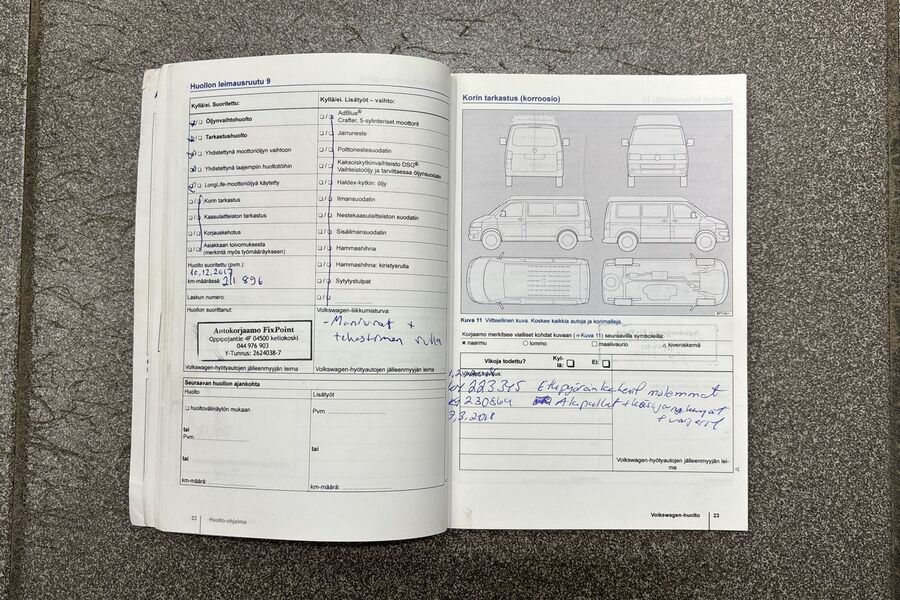 Huollon leimausruutu 9
Kyllä/ei. Suoritettu:
Öljynvaihtohuolto
Tarkastushuolto
Yhdistettynä moottoriöljyn vaihtoon
Yhdistettynä laajempiin huoltotöihin
LongLife-moottoriöljyä käytetty
Korin tarkastus
Kaasulaitteiston tarkastus
Korjauskehotus
Asiakkaan toivomuksesta
(merkintä myös työmääräykseen)
Huolto suoritettu (pvm.):
10.12.2017
km-määrässä: 211 896
Laskun numero:
Huolon suorittanut:
Autokorjaamo FixPoint
Oppipojantie 4F 04500 kellokoski
044 976 903
Y-Tunnus: 2624038-7
Volkswagen-hyötyautojen jälleenmyyjän leima
Kyllä/ei. Lisätyöt – vaihto:
AdBlue®
Crafter, 5-sylinteriset moottorit
Jarruneste
Polttonestesuodatin
Kaksoiskytkinvaihteisto DSG®:
Vaihteistoöljy ja tarvittaessa öljynsuodatin
Haldex-kytkin: öljy
Ilmansuodatin
Nestekaasulaitteiston suodatin
Sisäilmansuodatin
Hammashihna
Hammashihna: kiristysrulla
Sytytystulpat
Volkswagen-liikkumisturva:
- Moniurat +
rulla
Volkswagen-hyötyautojen jälleenmyyjän leima
Seuraavan huollon ajankohta
Huolto
huoltovälinäytön mukaan
tai
Pvm.
tai
km-määrä:
Lisätyöt
Pvm.
tai
km-määrä:
22 Huolto-ohjelma
Korin tarkastus (korroosio)
Kuva 11 Viitteellinen kuva. Koskee kaikkia autoja ja korimalleja.
Korjaamo merkitsee vialliset kohdat kuvaan (⇒ Kuva 11) seuraavilla symboleilla:
× naarmu ○ lommo □ maalivaurio △ kiveniskemä
Vikoja todettu? Kyl-
lä: Ei:
223345 Etupyöränlaakerit molemmat
230864 Alapallot +
3.3.2018 +
Volkswagen-hyötyautojen jälleenmyyjän lei-
ma
Volkswagen-huolto 23